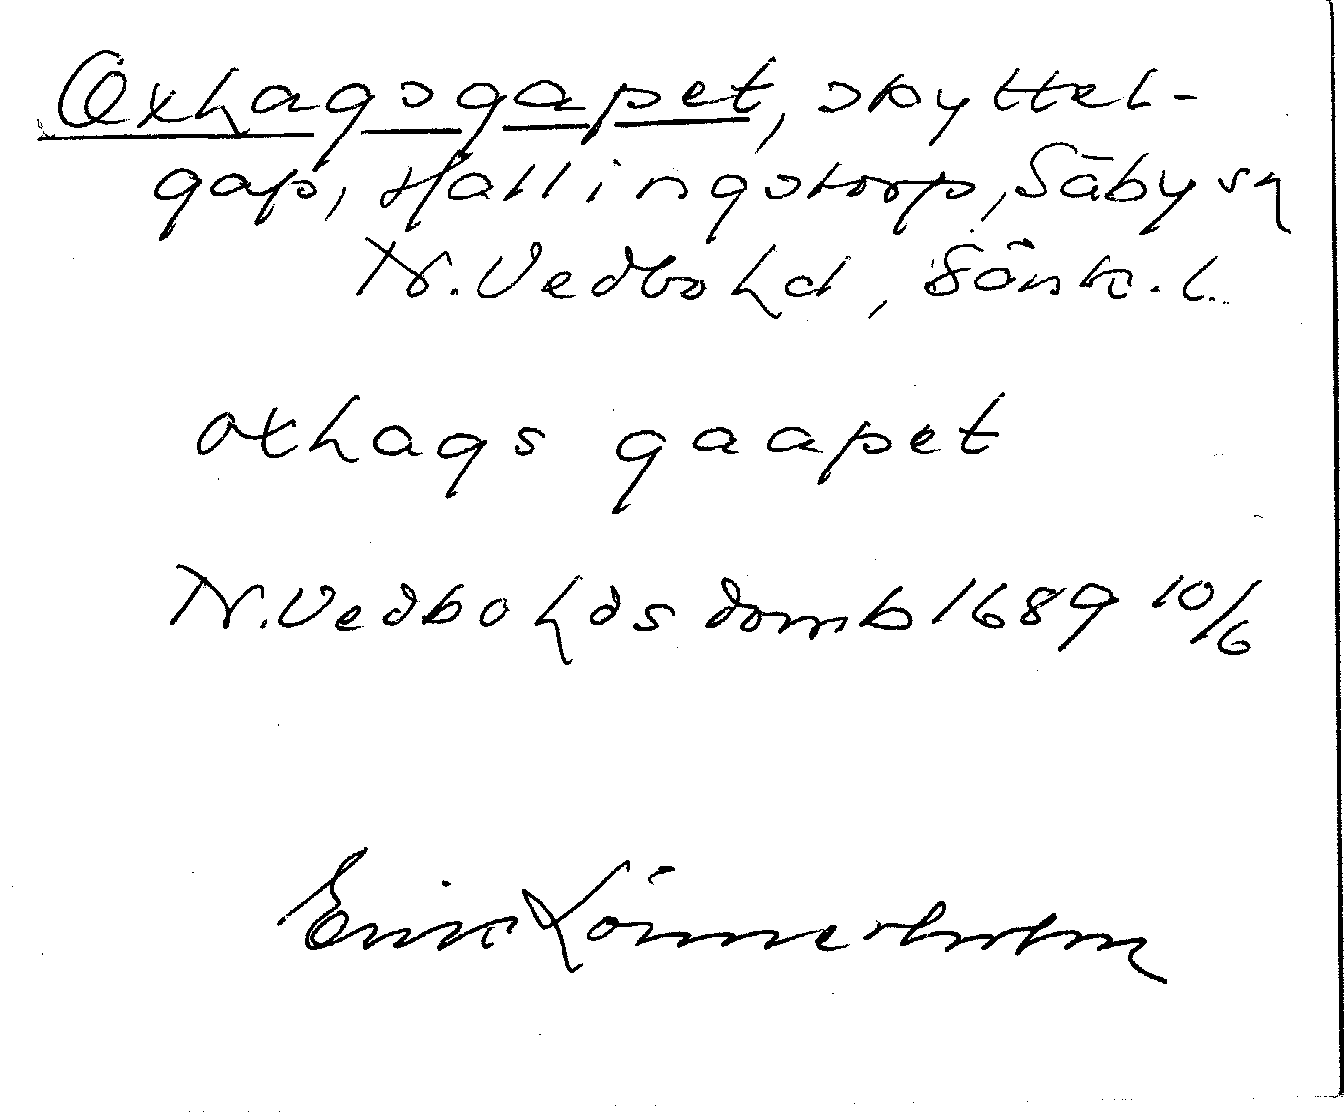 Oxhagsgapet, skyttel-
gap, Hallingstorp, Säby sn
N. Vedbo hd, Jönk. l.
oxhags gaapet
N. Vedbo hds domb 1689 10/6
Eric Lönnerholm